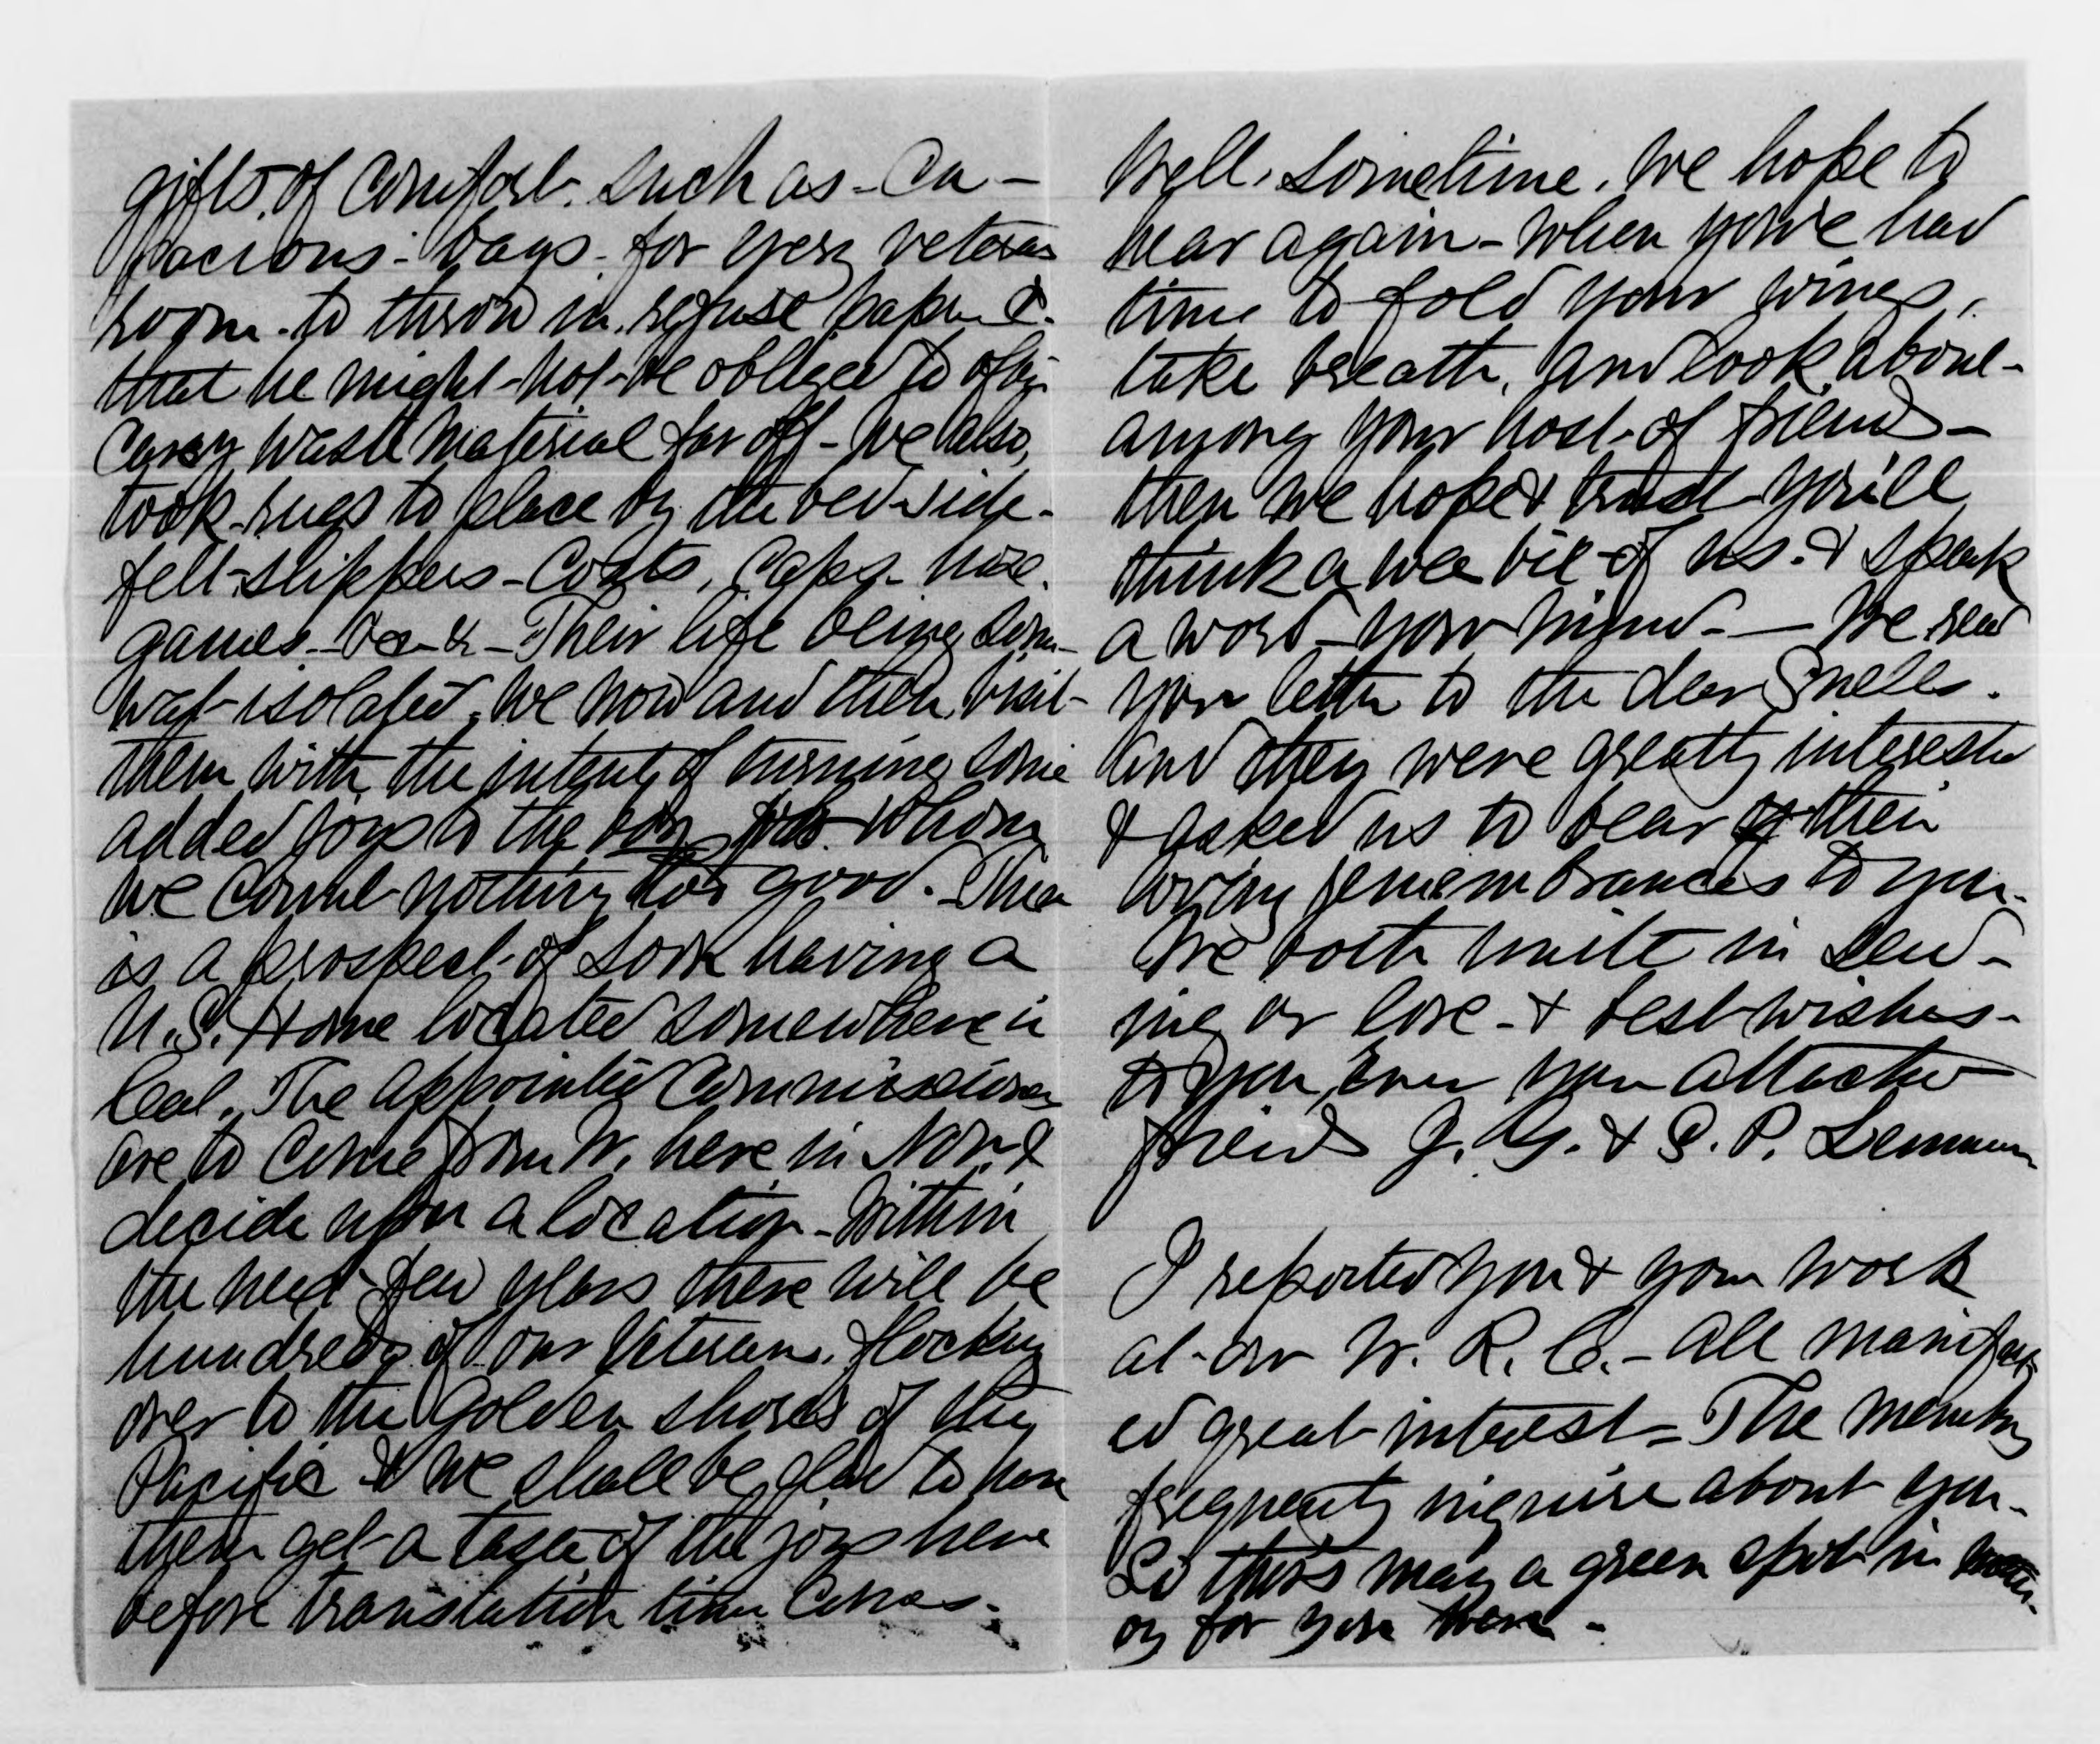 gifts, of comfort. such as - Ca -
pacious - bags - for every veterans
room - to throw in refuse paper &.
that he might - not - be obliged to often
carry waste material far off - We also,
took rugs to place by the bed-side -
felt-slippers - Coats, Caps - hose.
games - &c - &c - Their life being some-
what isolated, we now and then, visit -
them with the intent of turning some
added joys to the boys for whom
we count nothing too good. There
is a prospect - of soon having a
U.S. Home located somewhere in
Cal. The appointed Commissioners
are to come from W. here in Nov. &
decide upon a location - Within
the next few years there will be
hundreds of our Veterans. flocking
over to the Golden shores of the
Pacific & we shall be glad to have
them get - a taste of the joys here
before translation time comes -
Well, sometime, we hope to
hear again - when you've had
time to fold your wings,
take breath, and look about -
among your host - of friends -
then we hope & trust you'll
think a wee bit - of us - & speak
a word - your mind - — We read
your letter to the dear Snells.
and they were greatly interested
& asked us to bear their
loving remembrances to you.
We both unite in send -
ing our love - & best wishes -
to you, Ever your attached
friends J. G. & S. P. Lemmon
I reported you & your work
at - our W. R. C. - all manifest
ed great interest - The members
frequently inquire about you -
So there's many a green spot in mem
ory for you here -